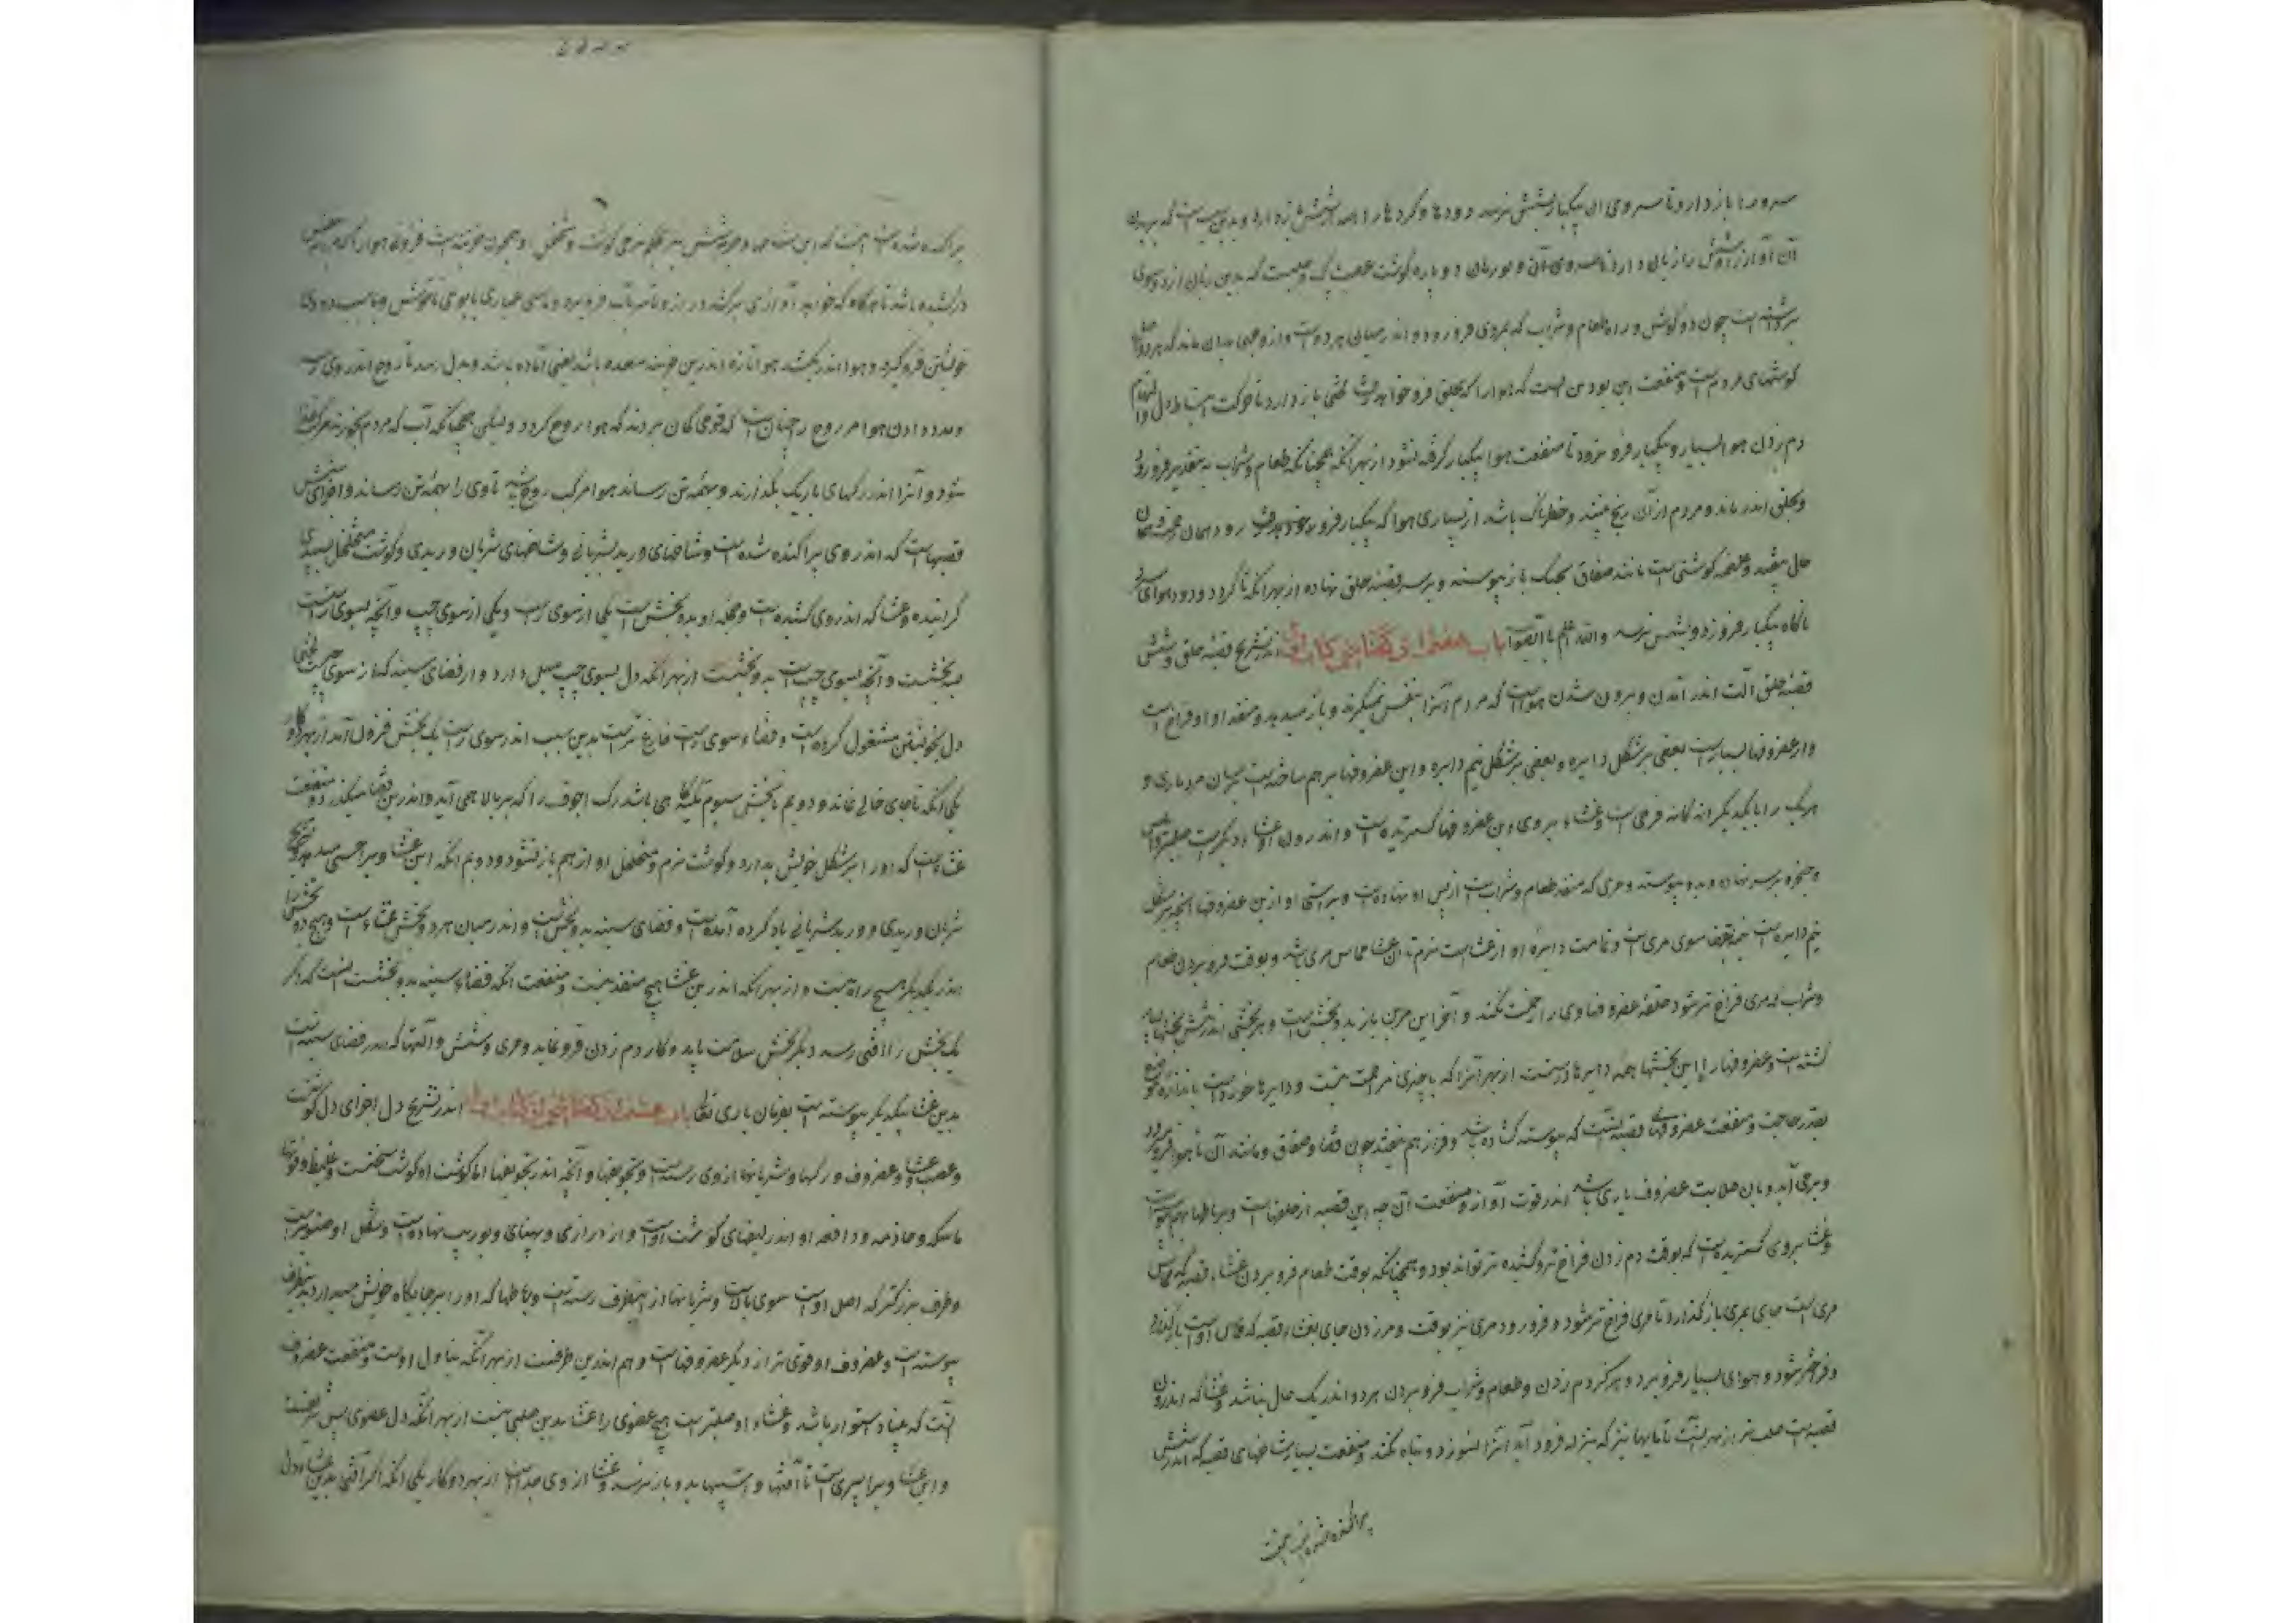 سرد را باز دارد تا سردی آن بیکبار بشش نرسد و دودها و کردها را همه از شش باز دارد و بدین سبب است که بریدن
آن آواز را و شش را زیان دارد
بررسته است چون دو کوش و راه طعام و شراب که بمری فرو رود اندر میان هر دو است و از وجهی بدان ماند که هر دو
کوشهای مردم است و منفعت این بودمن انست که هوا را که بحلق فرو خواهد شد لختی باز دارد تا حرکت
دم زدن هوا بسیار و بیکبار فرو نرود تا منفعت هوا بیکبار کرفته نشود از بهر انکه همچنانکه طعام و شراب به مقدیر فرو رود
و بحلق اندر ماند و مردم از آن رنج بیند و خطرناک باشد از بسیاری هوا که بیکبار فرو رود همان
حال بیفتد و غلصمه کوشتی است مانند صفاق بحنک باز پیوسته و بر سر قصبه حلق نهاده از بهر انکه تا کرد و دود و هوای
ناکاه بیکبار فرو نرود و بشش نرسد والله اعلم بالصواب باب هفتم از کفتار پنجم از کتاب اول اندر تشریح قصبه حلق و شش
قصبه حلق آلت اندر آمدن و برون شدن هوا است که مردم آنرا بنفس میکیرند و باز میدهد و منفذ او فراخ است
و از غضروفها بسیار است بعضی بر شکل دایره و بعضی بر شکل نیم دایره و این غضروفها بر هم ساخته است
هر یک را با یکدیکر اندکانه فرجی است و غشاء بر وی این غضروفها کسترده است و اندرون او غشاء دیکر است صلبتر و املس
و حنجره بر سر نهاده و بدو پیوسته و مری که منفذ طعام و شراب است از پس او نهاده است و براستی او از این غضروفها انچه بر شکل
نیم دایره است نیمه سوی مری است و تمامت دایره او از غشا است نرم تا این غشا مماس مری باشد و بوقت فرو بردن طعام
و شراب که مری فراخ تر شود حلقه غضروفها وی را زحمت نکند و آخر این باز بدو بخش است و هر بخشی اندر شش بخشها بسیار
کشته است و غضروفها را این بخشها همه دایره‌ها درست است از بهر آنرا که با چیزی مزحمت نیست و دایره‌ها خورد است باندازه
بقدر حاجت و منفعت غضروفهای قصبه انست که پیوسته کشاده باشد و فراز هم نیفتد چون غشا و صفاق و مانند آن تا هوا فرو میرود
و بر می آید و بان صلابت غضروف یاری باشد اندر قوت آواز و منفعت آن چه این قصبه از حلقها است و برباطها بهم پیوسته است
و غشا بروی کستریده است که بوقت دم زدن فراخ تر و کشیده تر تواند بود و همچنانکه بوقت طعام فرو بردن غشاء قصبه که مماس
مری است جای بمری باز کذارد تا مری فراخ تر شود و فرو رود مری نیز بوقت دم زدن جای بغشاء قصبه که مماس اوست باز کذارد
و فراختر شود و هوای بسیار فرو برد و هرکز دم زدن و طعام و شراب فرو بردن هر دو اندر یک حال نباشد و غشا که اندرون
قصبه است صلب تر از بهر انست تا مایهای تیز که بنزله فرود آید آنرا نسوزد و تباه نکند و منفعت بسیار شاخهای قصبه که اندر شش
پراکنده شده است انست
پراکنده شده است انست که این شاخها
در کشیده باشد تا هرکاه که خواهد آوازی برکشد دراز
خویشتن فرو کیرد و هوا اندر نکشد هوا تازه اندرین خزینه معده باشد یعنی آماده باشد و بدل رسد تا روح اندر وی
و مدد دادن هوا مر روح را چنان است که قومی کمان بردند که هوا روح کردد و لیکن همچنانکه آب که مردم بخورند مرکب غذا
شود و آنرا اندر رکهای باریک بکذارند و بهمه تن رساند هوا مرکب روح باشد تا وی را بهمه تن رساند و اجزای شش
قصبها است که اندر وی پراکنده شده است و شاخهای ورید شریانی و شاخهای شریان وریدی و کوشت متخلخل
کراینده و غشا که اندر وی کشیده است و جمله او بدو بخش است یکی از سوی راست و یکی از سوی چپ و آنچه بسوی راست است
سه بخشست و آنچه بسوی چپ است بدو بخشست از بهر آنکه دل بسوی چپ میل دارد و از فضای سینه کنار سوی چپ لختی
دل بخویشتن مشغول کرده است و فضاء سوی راست فارغ تر است بدین سبب اندر سوی راست یک بخش فزون آمد از بهر دو کار
یکی انکه تا جای خالی نماند و دویم تا بخش سیوم تکیه کاهی باشد رک اجوف را که بر بالا همی آید و اندرین فضا میکذرد و منفعت
غشا است که او را بر شکل خویش بدارد و کوشت نرم و متخلخل او از هم باز نشود و دویم انکه این غشا ویرا حسی میدهد
شریان وریدی و ورید شریانی یاد کرده آمده است و فضای سینه بدو بخشست و اندر میان هر دو بخش غشاء است و هیچ دو بخش را
اندر یکدیکر هیچ راه نیست و از بهر انکه اندرین غشا هیچ منفذ نیست و منفعت انکه فضاء سینه بدو بخشست انست که اکر
یک بخش را آفتی رسد دیکر بخش سلامت یابد و کار دم زدن فرو نماند و مری و شش و آلتها که اندر فضای سینه است
بدین غشا بیکدیکر پیوسته است بفرمان باری تعالی باب هشتم از کفتار پنجم از کتاب اول اندر تشریح دل اجزای دل کوشت
و عصب و غشا و غضروف و رکها و شریانها از وی رسته است و تجویفها و آنچه اندر تجویفها اما کوشت او کوشت سخت است و غلیظ و قوتها
ماسکه و جاذبه و دافعه او اندر لیفهای کوشت او است و از درازی و پهنای و بوریب نهاده است و شکل او صنوبریست
و طرف بزرکتر که اصل او است سوی بالاست و شریانها از این طرف رسته است و رباطها که او را بر جایکاه خویش میدارد بدین طرف
پیوسته است و غضروف او قوی تر از دیکر غضروفها است و هم اندرین طرفست از بهر آنکه بنیاد دل اوست و منفعت غضروف
آنست که بنیاد استوار باشد و غشاء او صلبتر است هیچ عضوی را غشا بدین صلبی نیست از بهر آنکه دل عضوی بس شریفست
و این غشا ویرا سپری است تا آفتها و آسیبها بدو باز نرسد و غشا از وی جداست از بهر دو کار یکی انکه اکر آفتی بدین غشا